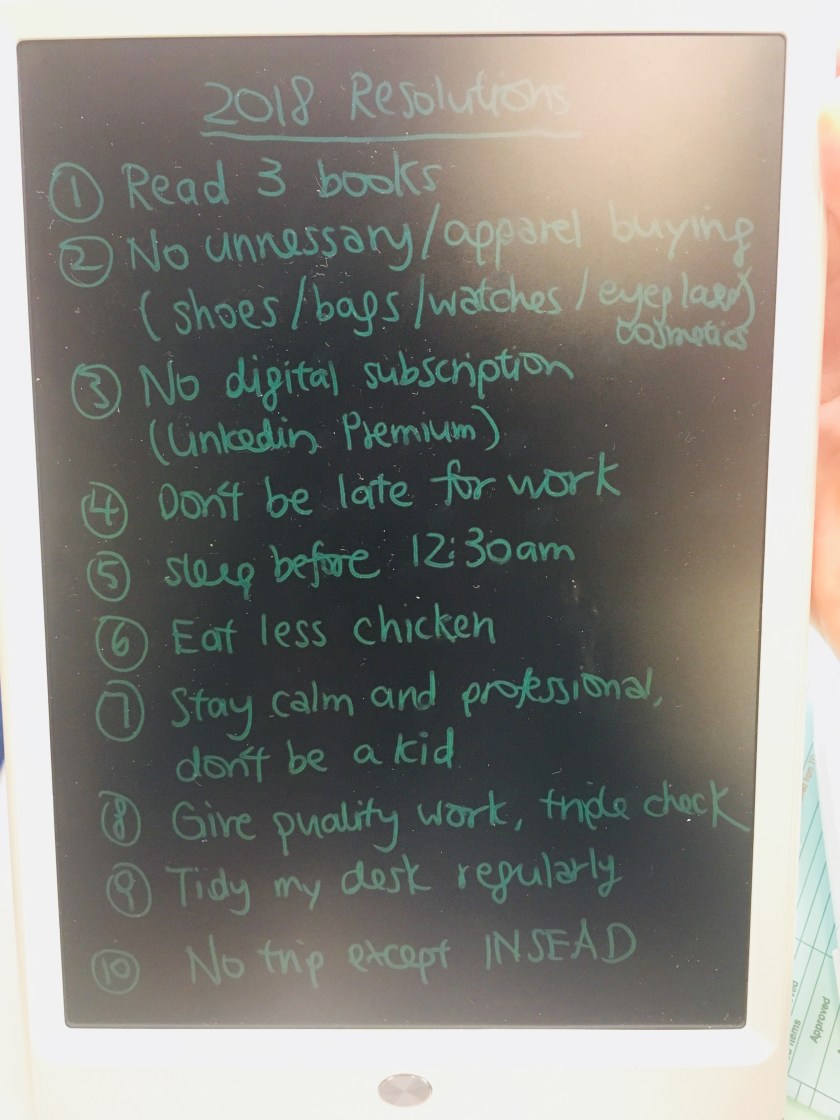 2018 Resolutions
① Read 3 books
② No unnessary/apparel buying
(shoes/bags/watches/eyeglass)
cosmetics
③ No digital subscription
(Linkedin Premium)
④ Don't be late for work
⑤ sleep before 12:30am
⑥ Eat less chicken
⑦ Stay calm and professional,
don't be a kid
⑧ Give quality work, triple check
⑨ Tidy my desk regularly
⑩ No trip except INSEAD
Items
Approved